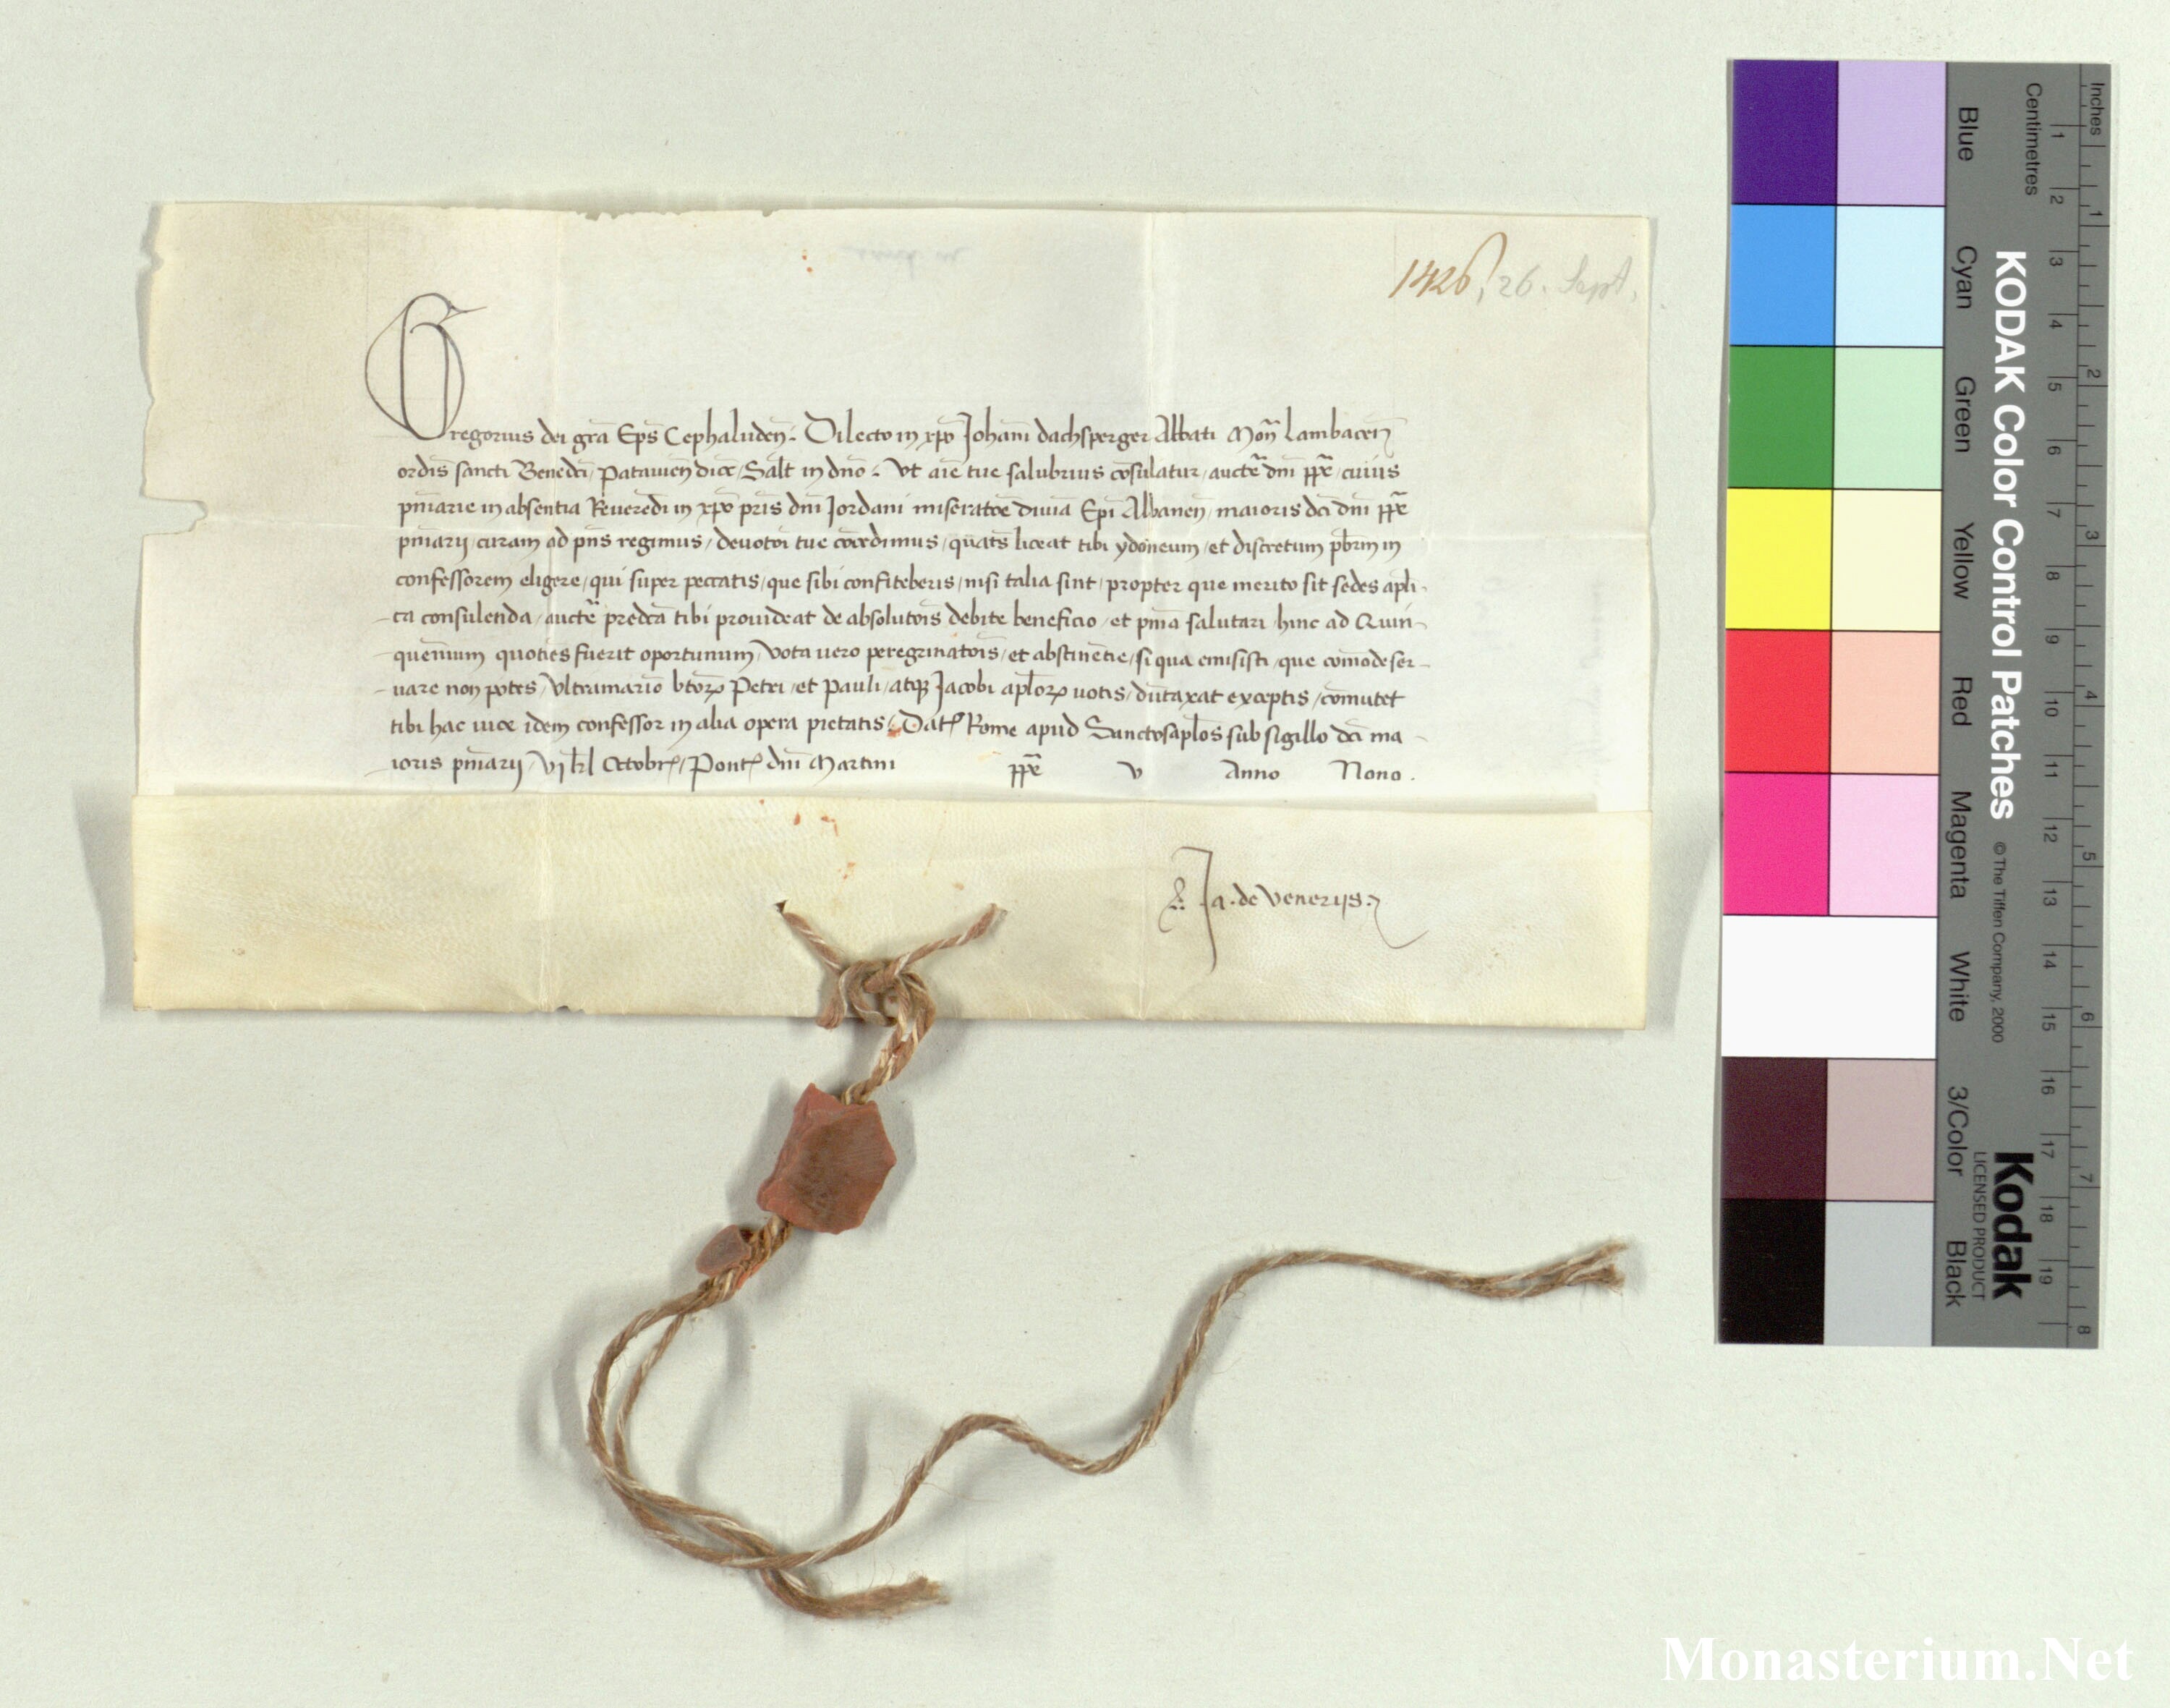 1426, 26. Sept.
Gregorius dei grã Ep̃s Cephaludeñ. Dilecto in xp̃o Johãni dachsperger Abbati Moñ Lambaceñ
ordĩs sancti Bened̃ci / Patauieñ dioc̃ / Sal̃t in dño. Vt aĩe tue salubrius cõsulatur / auct̃e dñi pp̃e / cuius
pñiarie in absentia Reueređi in xp̃o pr̃is dñi Jordani miserat̃oe diuiã Ep̃i Albaneñ / maioris dc̃i dñi pp̃e
pñiarij / curam ad p̃ns regimus / deuotõi tue cõcedimus / quateñs liceat tibi ydoneum / et discretum pb̃rm in
confessorem eligere / qui super peccatis / que sibi confiteberis / nisi talia sint / propter que merito sit sedes apl̃i-
-ca consulenda / auct̃e predc̃a tibi prouideat de absolutõis debite beneficio / et pñia salutari / hinc ad Quin-
-quẽnium quotiẽs fuerit oportunum / Vota uero peregrinatõis / et abstinẽtie / si qua emisisti / que cõmode ser-
-uare non potes / Vltramarĩo b̃torꝝ Petri / et Pauli / atqꝫ Jacobi apl̃orꝝ uotis / dũtaxat exceptis / cõmutet
tibi hac uice idem confessor in alia opera pietatis / Dat̃ Rome apud Sanctosapl̃os sub sigillo dc̃i ma-
-ioris pñiarij / vj kl̃ Octobr̃ / Pont̃ dñi Martini pp̃e v Anno Nono.
Ja. de Venerijs.
KODAK Color Control Patches
© The Tiffen Company, 2000
Kodak
LICENSED PRODUCT
Inches
Centimetres
1 2 3 4 5 6 7 8 9 10 11 12 13 14 15 16 17 18 19
1 2 3 4 5 6 7 8
Blue
Cyan
Green
Yellow
Red
Magenta
White
3/Color
Black
Monasterium.Net